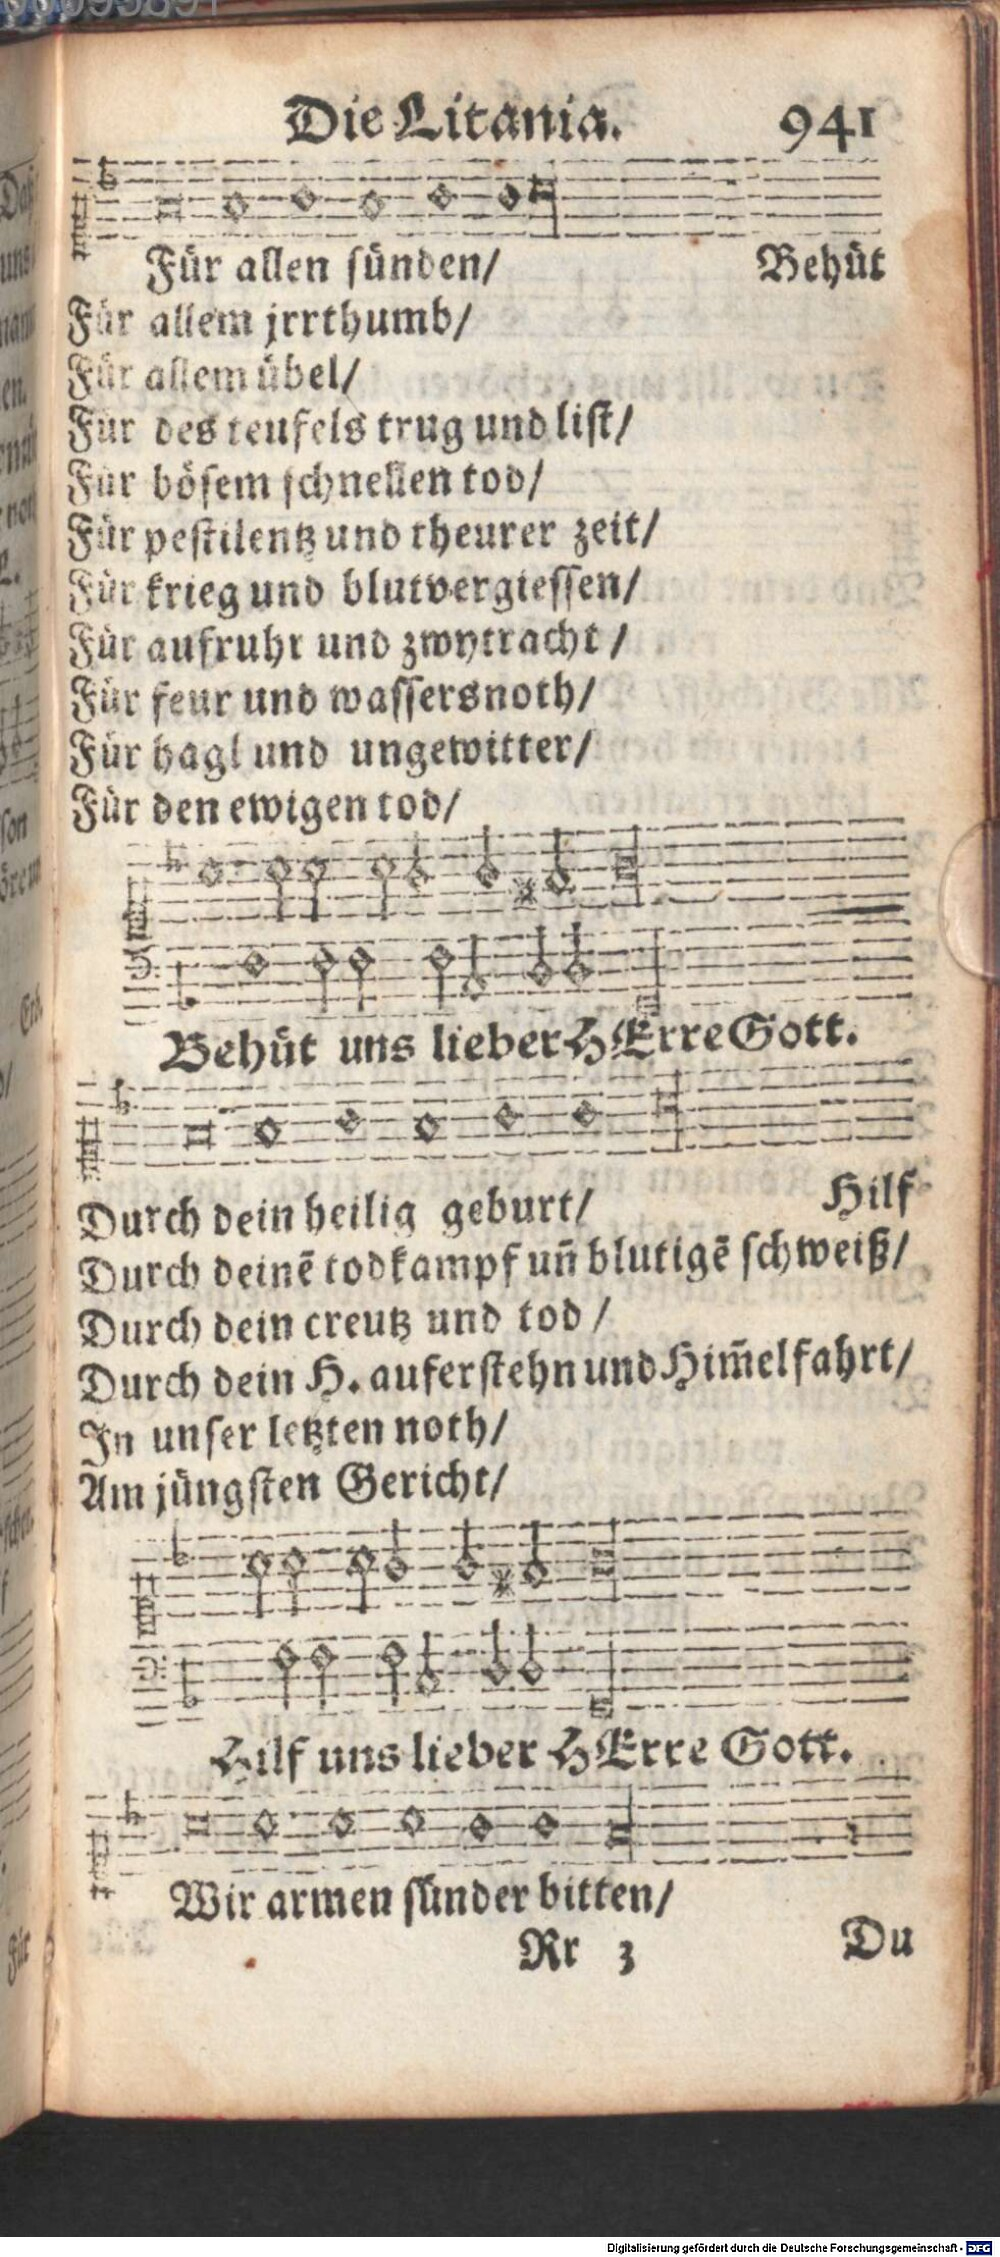 Die Litania. 941
Für allen sünden/ Behüt
Für allem jrrthumb/
Für allem übel/
Für des teufels trug und list/
Für bösem schnellen tod/
Für pestilentz und theurer zeit/
Für krieg und blutvergiessen/
Für aufruhr und zwytracht /
Für feur und wassersnoth/
Für hagl und ungewitter/
Für den ewigen tod/
Behüt uns lieber HErre Gott.
Durch dein heilig geburt/ Hilf
Durch deinẽ todkampf uñ blutigẽ schweiß/
Durch dein creutz und tod /
Durch dein H. auferstehn und Him̃elfahrt/
In unser letzten noth/
Am jüngsten Gericht/
Hilf uns lieber HErre Gott.
Wir armen sünder bitten/
Rr 3 Du
Digitalisierung gefördert durch die Deutsche Forschungsgemeinschaft - DFG